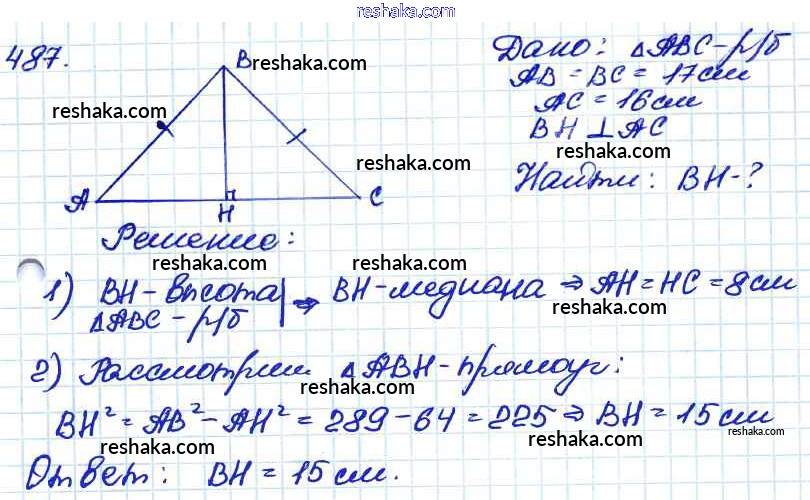 reshaka.com
487.
B reshaka.com
reshaka.com
reshaka.com
A
H
C
Дано: △ABC - р/б
AB = BC = 17 см
AC = 16 см
BH ⊥ AC
reshaka.com
Найти: BH - ?
Решение:
reshaka.com
reshaka.com
1) BH - высота
△ABC - р/б
⇒ BH - медиана ⇒ AH = HC = 8 см
reshaka.com
2) Рассмотрим △ABH - прямоуг:
reshaka.com
BH² = AB² - AH² = 289 - 64 = 225 ⇒ BH = 15 см
reshaka.com
reshaka.com
reshaka.com
Ответ: BH = 15 см.
reshaka.com